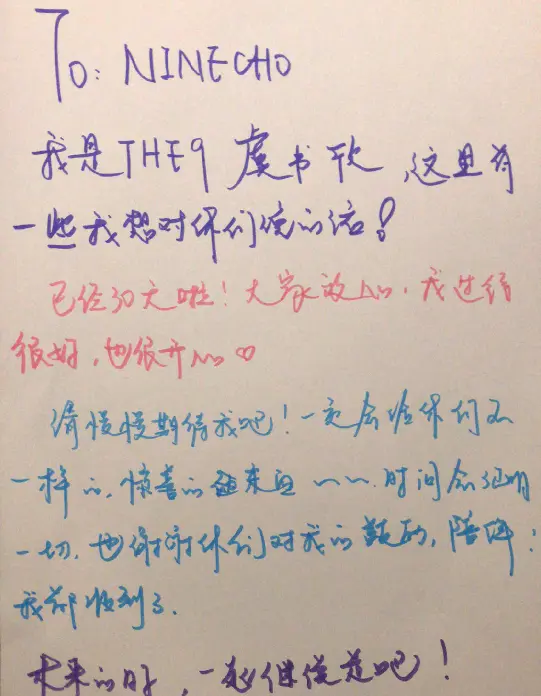 To: NINECHO
我是THE9 虞书欣,这里有
一些我想对你们说的话!
已经30天啦!大家放心,我过得
很好,也很开心♡
请慢慢期待我吧!一定会给你们不
一样的,惊喜的 ~~ 时间会证明
一切,也谢谢你们对我的鼓励,陪伴:
我都收到了.
未来的日子,一起继续走吧!